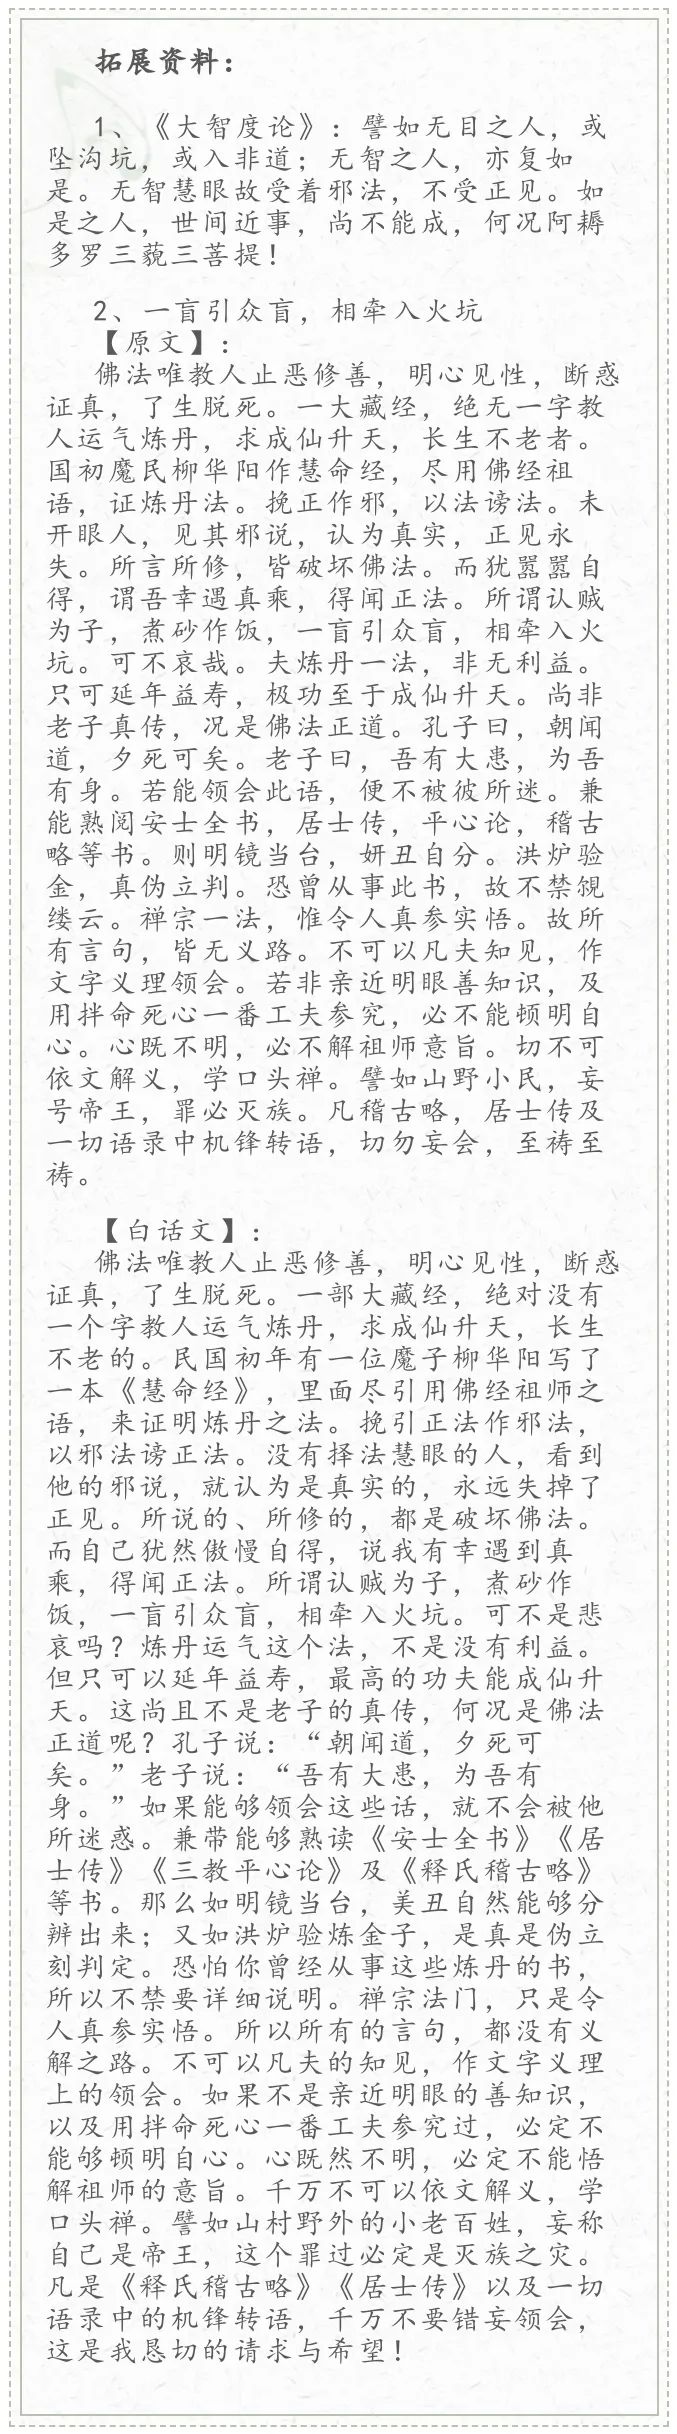 拓展资料：
1、《大智度论》：譬如无目之人，或
坠沟坑，或入非道；无智之人，亦复如
是。无智慧眼故受着邪法，不受正见。如
是之人，世间近事，尚不能成，何况阿耨
多罗三藐三菩提！
2、一盲引众盲，相牵入火坑
【原文】：
佛法唯教人止恶修善，明心见性，断惑
证真，了生脱死。一大藏经，绝无一字教
人运气炼丹，求成仙升天，长生不老者。
国初魔民柳华阳作慧命经，尽用佛经祖
语，证炼丹法。挽正作邪，以法谤法。未
开眼人，见其邪说，认为真实，正见永
失。所言所修，皆破坏佛法。而犹嚣嚣自
得，谓吾幸遇真乘，得闻正法。所谓认贼
为子，煮砂作饭，一盲引众盲，相牵入火
坑。可不哀哉。夫炼丹一法，非无利益。
只可延年益寿，极功至于成仙升天。尚非
老子真传，况是佛法正道。孔子曰，朝闻
道，夕死可矣。老子曰，吾有大患，为吾
有身。若能领会此语，便不被彼所迷。兼
能熟阅安士全书，居士传，平心论，稽古
略等书。则明镜当台，妍丑自分。洪炉验
金，真伪立判。恐曾从事此书，故不禁觇
缕云。禅宗一法，惟令人真参实悟。故所
有言句，皆无义路。不可以凡夫知见，作
文字义理领会。若非亲近明眼善知识，及
用拌命死心一番工夫参究，必不能顿明自
心。心既不明，必不解祖师意旨。切不可
依文解义，学口头禅。譬如山野小民，妄
号帝王，罪必灭族。凡稽古略，居士传及
一切语录中机锋转语，切勿妄会，至祷至
祷。
【白话文】：
佛法唯教人止恶修善，明心见性，断惑
证真，了生脱死。一部大藏经，绝对没有
一个字教人运气炼丹，求成仙升天，长生
不老的。民国初年有一位魔子柳华阳写了
一本《慧命经》，里面尽引用佛经祖师之
语，来证明炼丹之法。挽引正法作邪法，
以邪法谤正法。没有择法慧眼的人，看到
他的邪说，就认为是真实的，永远失掉了
正见。所说的、所修的，都是破坏佛法。
而自己犹然傲慢自得，说我有幸遇到真
乘，得闻正法。所谓认贼为子，煮砂作
饭，一盲引众盲，相牵入火坑。可不是悲
哀吗？炼丹运气这个法，不是没有利益。
但只可以延年益寿，最高的功夫能成仙升
天。这尚且不是老子的真传，何况是佛法
正道呢？孔子说：“朝闻道，夕死可
矣。”老子说：“吾有大患，为吾有
身。”如果能够领会这些话，就不会被他
所迷惑。兼带能够熟读《安士全书》《居
士传》《三教平心论》及《释氏稽古略》
等书。那么如明镜当台，美丑自然能够分
辨出来；又如洪炉验炼金子，是真是伪立
刻判定。恐怕你曾经从事这些炼丹的书，
所以不禁要详细说明。禅宗法门，只是令
人真参实悟。所以所有的言句，都没有义
解之路。不可以凡夫的知见，作文字义理
上的领会。如果不是亲近明眼的善知识，
以及用拌命死心一番工夫参究过，必定不
能够顿明自心。心既然不明，必定不能悟
解祖师的意旨。千万不可以依文解义，学
口头禅。譬如山村野外的小老百姓，妄称
自己是帝王，这个罪过必定是灭族之灾。
凡是《释氏稽古略》《居士传》以及一切
语录中的机锋转语，千万不要错妄领会，
这是我恳切的请求与希望！